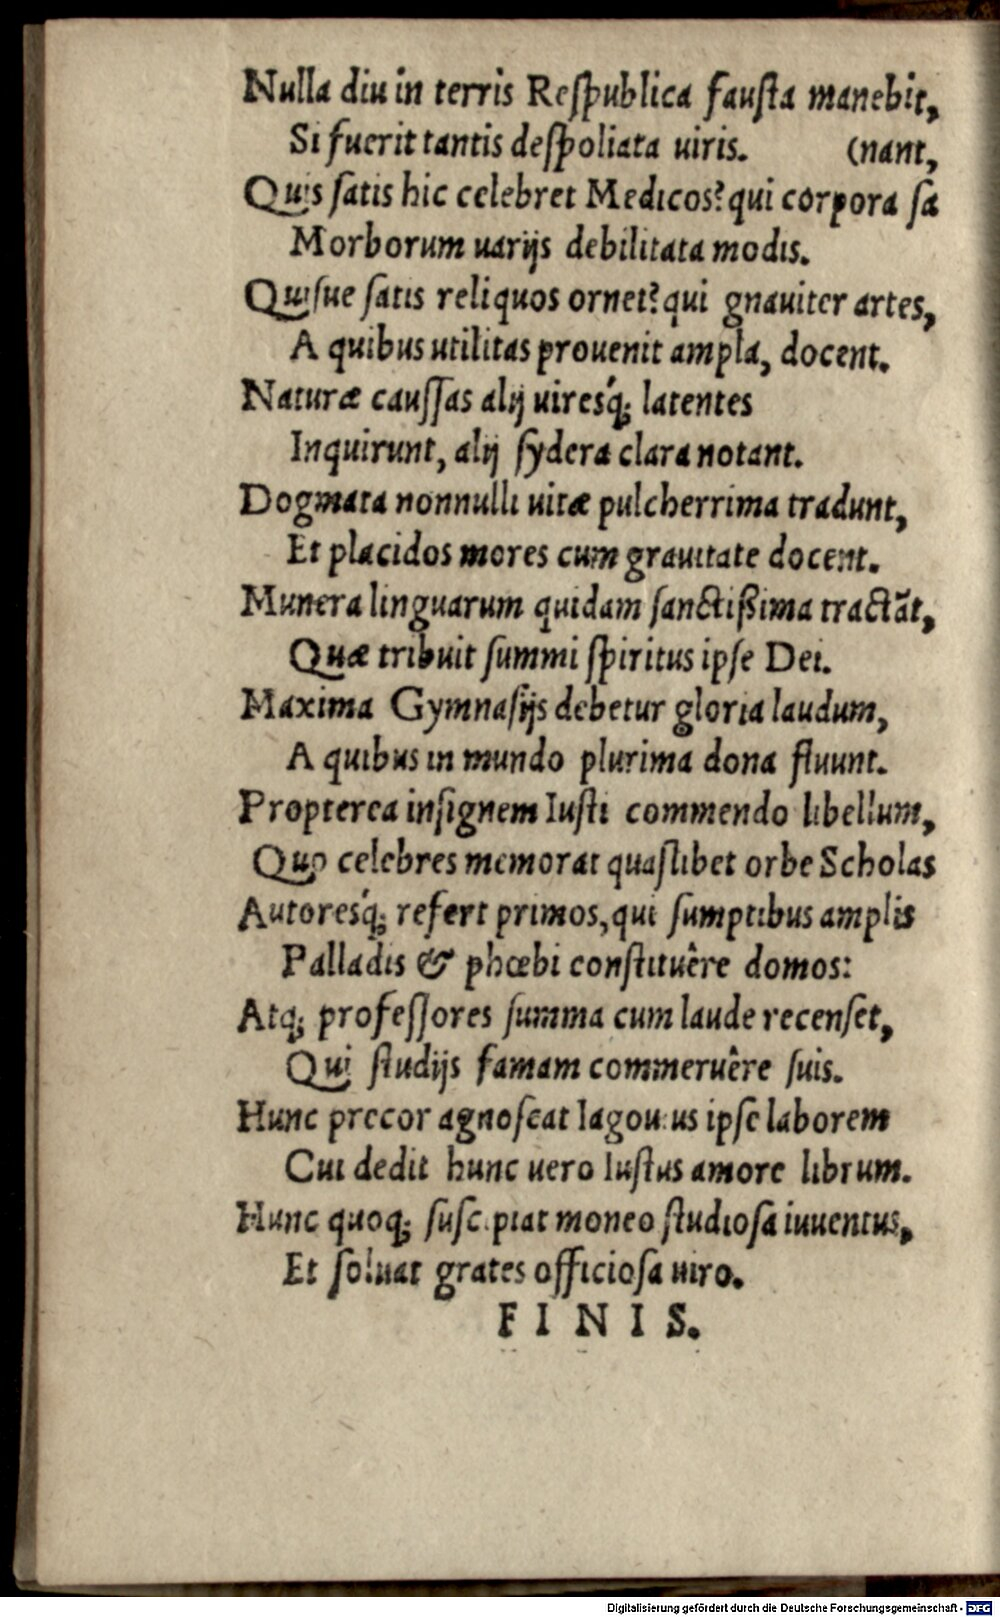 Nulla diu in terris Reſpublica fauſta manebit,
Si fuerit tantis deſpoliata uiris. (nant,
Quis ſatis hic celebret Medicos? qui corpora ſa
Morborum uarijs debilitata modis.
Quiſue ſatis reliquos ornet? qui gnauiter artes,
A quibus utilitas prouenit ampla, docent.
Naturæ cauſſas alij uiresq́; latentes
Inquirunt, alij ſydera clara notant.
Dogmata nonnulli uitæ pulcherrima tradunt,
Et placidos mores cum grauitate docent.
Munera linguarum quidam ſanctißima tractãt,
Quæ tribuit ſummi ſpiritus ipſe Dei.
Maxima Gymnaſijs debetur gloria laudum,
A quibus in mundo plurima dona fluunt.
Propterea inſignem Iuſti commendo libellum,
Quo celebres memorat quaſlibet orbe Scholas
Autoresq́; refert primos, qui ſumptibus amplis
Palladis & phœbi conſtituêre domos:
Atq; profeſſores ſumma cum laude recenſet,
Qui ſtudijs famam commeruêre ſuis.
Hunc precor agnoſcat Iagouius ipſe laborem
Cui dedit hunc uero Iuſtus amore librum.
Hunc quoq; ſuſcipiat moneo ſtudioſa iuuentus,
Et ſoluat grates officioſa uiro.
FINIS.
Digitalisierung gefördert durch die Deutsche Forschungsgemeinschaft - DFG